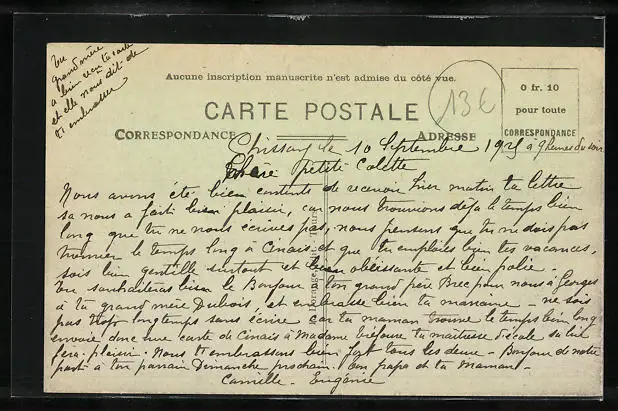 Ta
grand mère
a bien reçu ta carte
et elle nous dit de
t'embrasser
Aucune inscription manuscrite n'est admise du côté vue.
13€
0 fr. 10
pour toute
CORRESPONDANCE
CARTE POSTALE
CORRESPONDANCE
ADRESSE
le 10 Septembre 1925 à 9 heures du soir
Chère petite Colette
Nous avons été bien contents de recevoir hier matin ta lettre
sa nous a fait bien plaisir, car nous trouvions déjà le temps bien
long que tu ne nous écrives pas, nous pensons que tu ne dois pas
trouver le temps long à Cinais et que tu emploies bien tes vacances,
sois bien gentille surtout et bien obéissante et bien polie.
Tu souhaiteras bien le Bonjour à ton grand père Brec pour nous à Georges
à ta grand mère Dubois et embrasse bien ta maman - ne sois
pas trop longtemps sans écrire car ta maman trouve le temps bien long
envoie donc une carte de Cinais à Madame ta maîtresse d'école sa lui
fera plaisir. Nous t'embrassons bien fort tous les deux - Bonjour de notre
part à ton parrain Dimanche prochain. Ton papa et ta Maman -
Camille - Eugénie